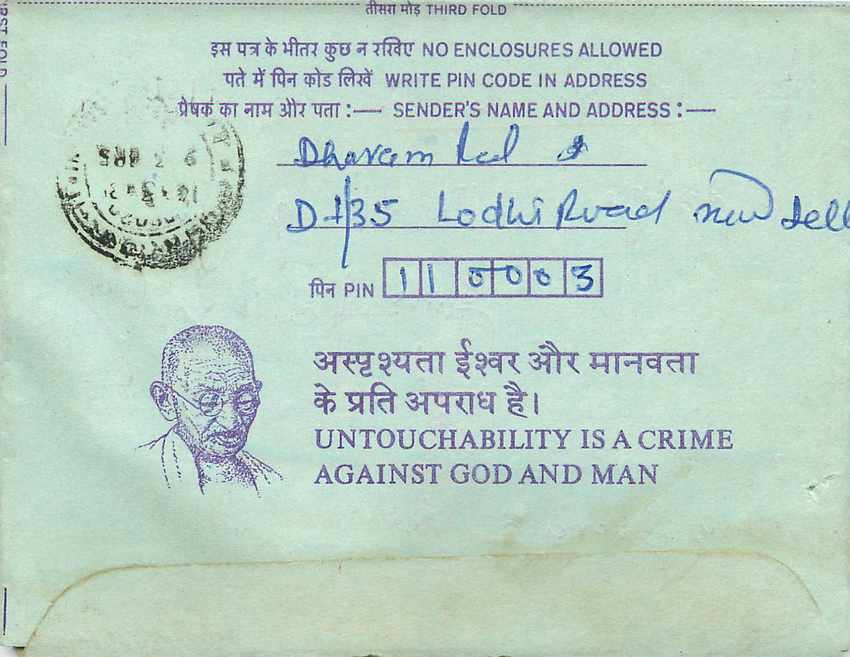 तीसरा मोड़ THIRD FOLD
FOLD
इस पत्र के भीतर कुछ न रखिए NO ENCLOSURES ALLOWED
पते में पिन कोड लिखें WRITE PIN CODE IN ADDRESS
प्रेषक का नाम और पता :— SENDER'S NAME AND ADDRESS :—
Dharam
D-1/35 Lodhi Road New Dell
पिन PIN 110003
अस्पृश्यता ईश्वर और मानवता
के प्रति अपराध है।
UNTOUCHABILITY IS A CRIME
AGAINST GOD AND MAN